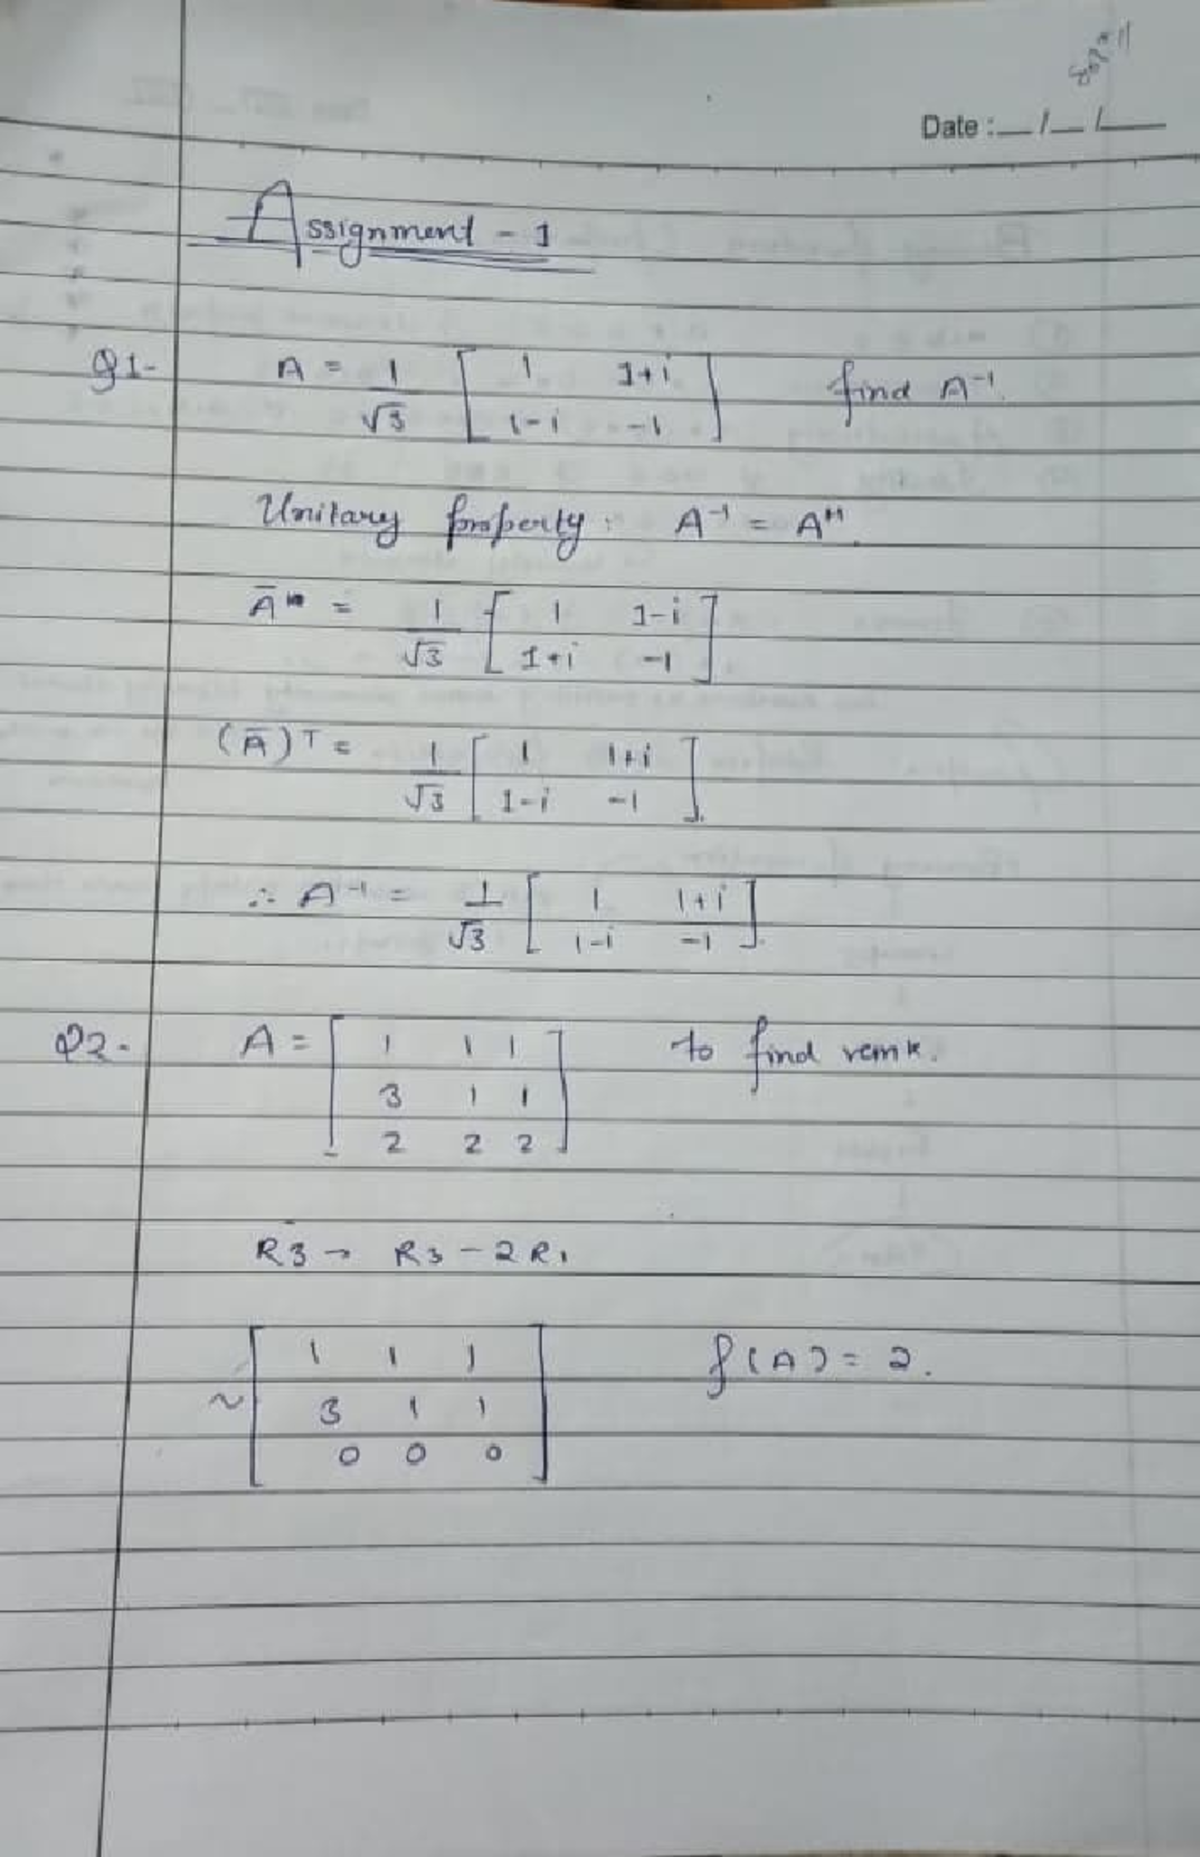 Date :__/__/____
Assignment - 1
Q1- A = 1/√3 [ 1 1+i ; 1-i -1 ] find A⁻¹.
Unitary property: A⁻¹ = Aᴴ.
Ā = 1/√3 [ 1 1-i ; 1+i -1 ]
(Ā)ᵀ = 1/√3 [ 1 1+i ; 1-i -1 ].
∴ A⁻¹ = 1/√3 [ 1 1+i ; 1-i -1 ].
Q2- A = [ 1 1 1 ; 3 1 1 ; 2 2 2 ] to find rank.
R3 → R3 - 2R1
~ [ 1 1 1 ; 3 1 1 ; 0 0 0 ] ρ(A) = 2.